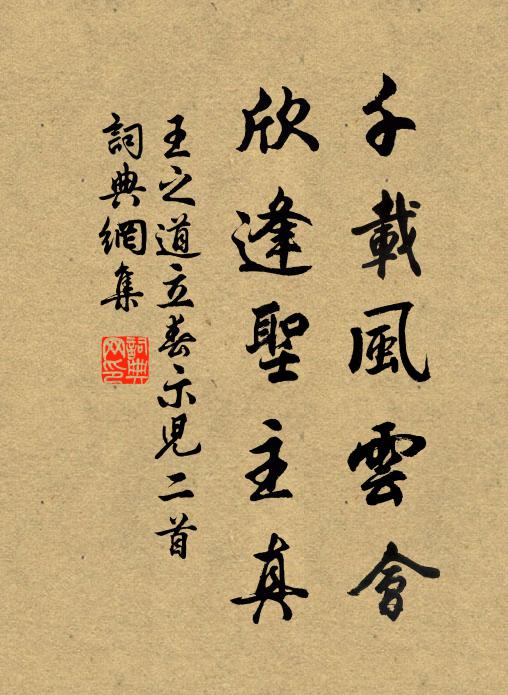 千載風雲會
欣逢聖主真
王之道立春示児二首
詞典網集
詞典網印